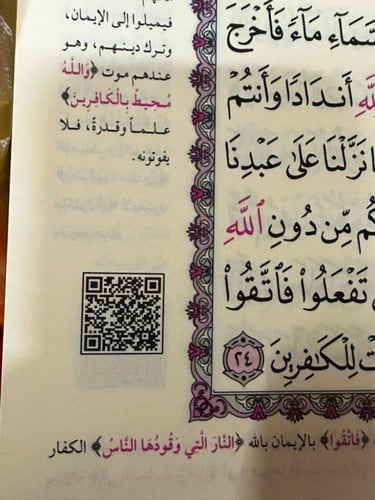 فيميلوا إلى الإيمان،
وترك دينهم، وهو
عندهم موت ﴿وَاللَّهُ
مُحِيطٌ بِالْكَافِرِينَ﴾
علماً وقدرةً، فلا
يفوتونه.
لسَّمَآءِ مَآءً فَأَخْرَجَ
أَندَادًا وَأَنتُمْ
نَزَّلْنَا عَلَىٰ عَبْدِنَا
كُم مِّن دُونِ ٱللَّهِ
تَفْعَلُوا۟ فَٱتَّقُوا۟
لِلْكَٰفِرِينَ ٢٤
﴿فَاتَّقُوا﴾ بالإيمان بالله ﴿النَّارَ الَّتِي وَقُودُهَا النَّاسُ﴾ الكفار